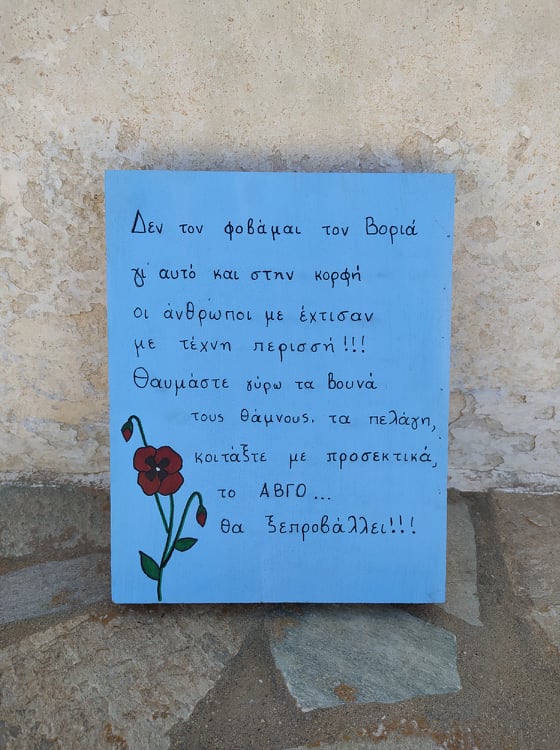 Δεν τον φοβάμαι τον Βοριά
γι' αυτό και στην κορφή
οι άνθρωποι με έχτισαν
με τέχνη περισσή!!!
Θαυμάστε γύρω τα βουνά
τους θάμνους, τα πελάγη,
κοιτάξτε με προσεκτικά,
το ΑΒΓΟ...
θα ξεπροβάλλει!!!